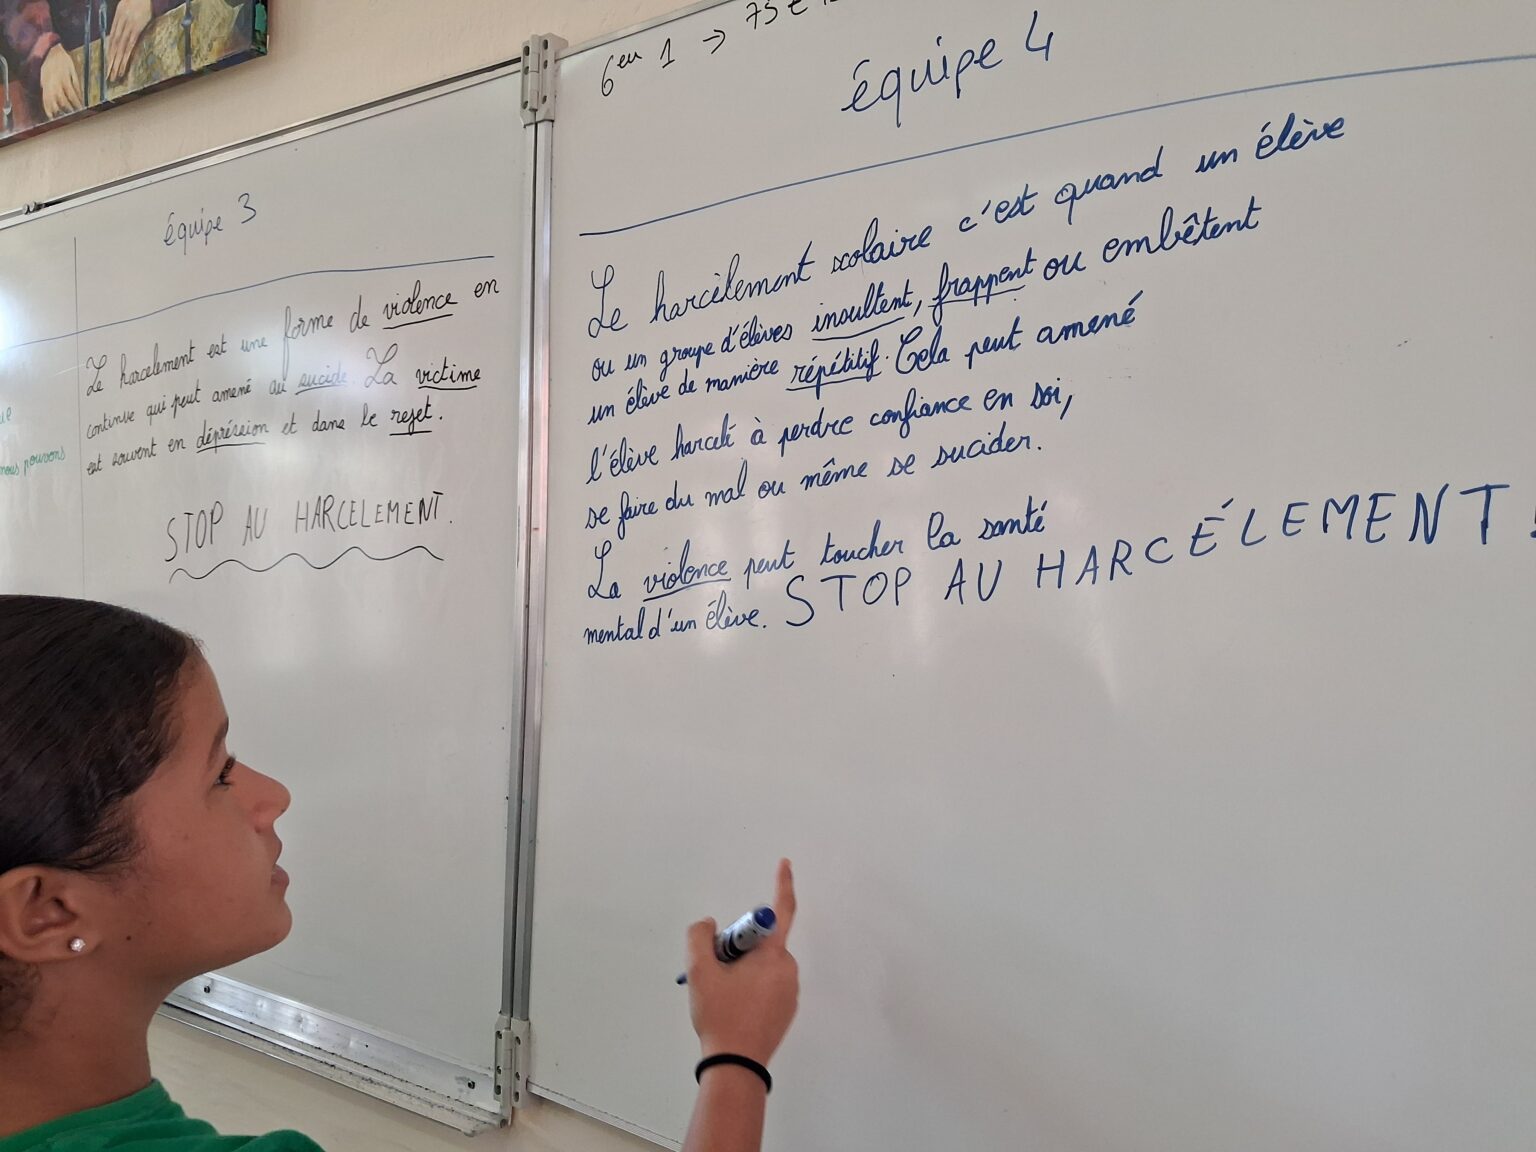 équipe 3
Le harcelement est une forme de violence en
continue qui peut amené au sucide. La victime
est souvent en dépréssion et dans le rejet.
STOP AU HARCELEMENT.
nous pouvons
6eu 1 →
équipe 4
Le harcèlement scolaire c'est quand un élève
ou un groupe d'élèves insultent, frappent ou embêtent
un élève de manière répétitif. Cela peut amené
l'élève harcelé à perdre confiance en soi,
se faire du mal ou même se sucider.
La violence peut toucher la santé
mental d'un élève. STOP AU HARCÉLEMENT !